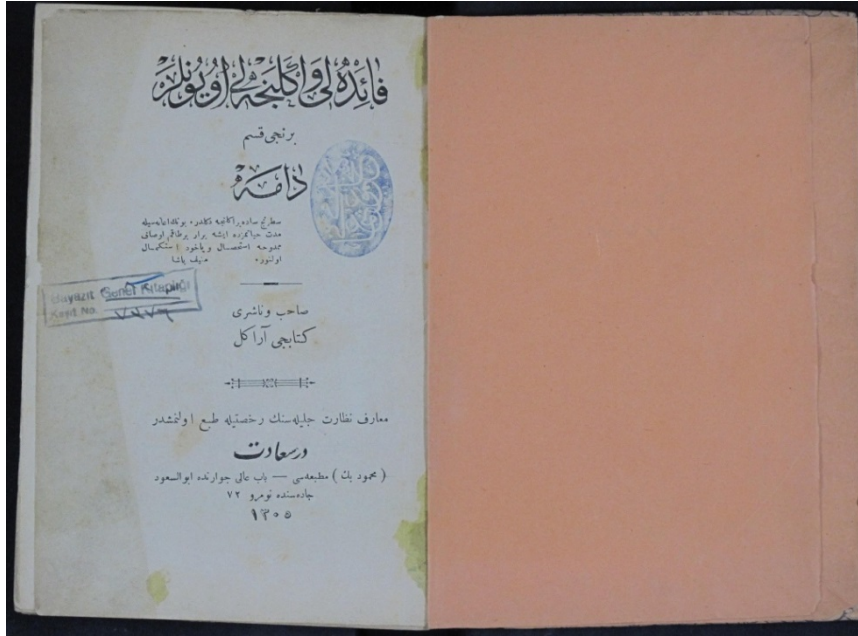 فائده‌لی و اكلنجه‌لی اویونلر
برنجی قسم
دامه
سطرنج ساده بر اكلنجه دكلدر. بونك
مدت حیاتمزده ایشه یرار بر طاقم اوصاف
ممدوحه استحصال و یاخود استكمال
اولنور. منیف پاشا
Bayazıt Genel Kitaplığı
Kayıt No.
صاحب و ناشری
كتابجی آراكل
معارف نظارت جلیله‌سنك رخصتیله طبع اولنمشدر
درسعادت
( محمود بك ) مطبعه‌سی — باب عالی جوارنده ابوالسعود
جاده‌سنده نومرو ٧٢
١٣٠٥